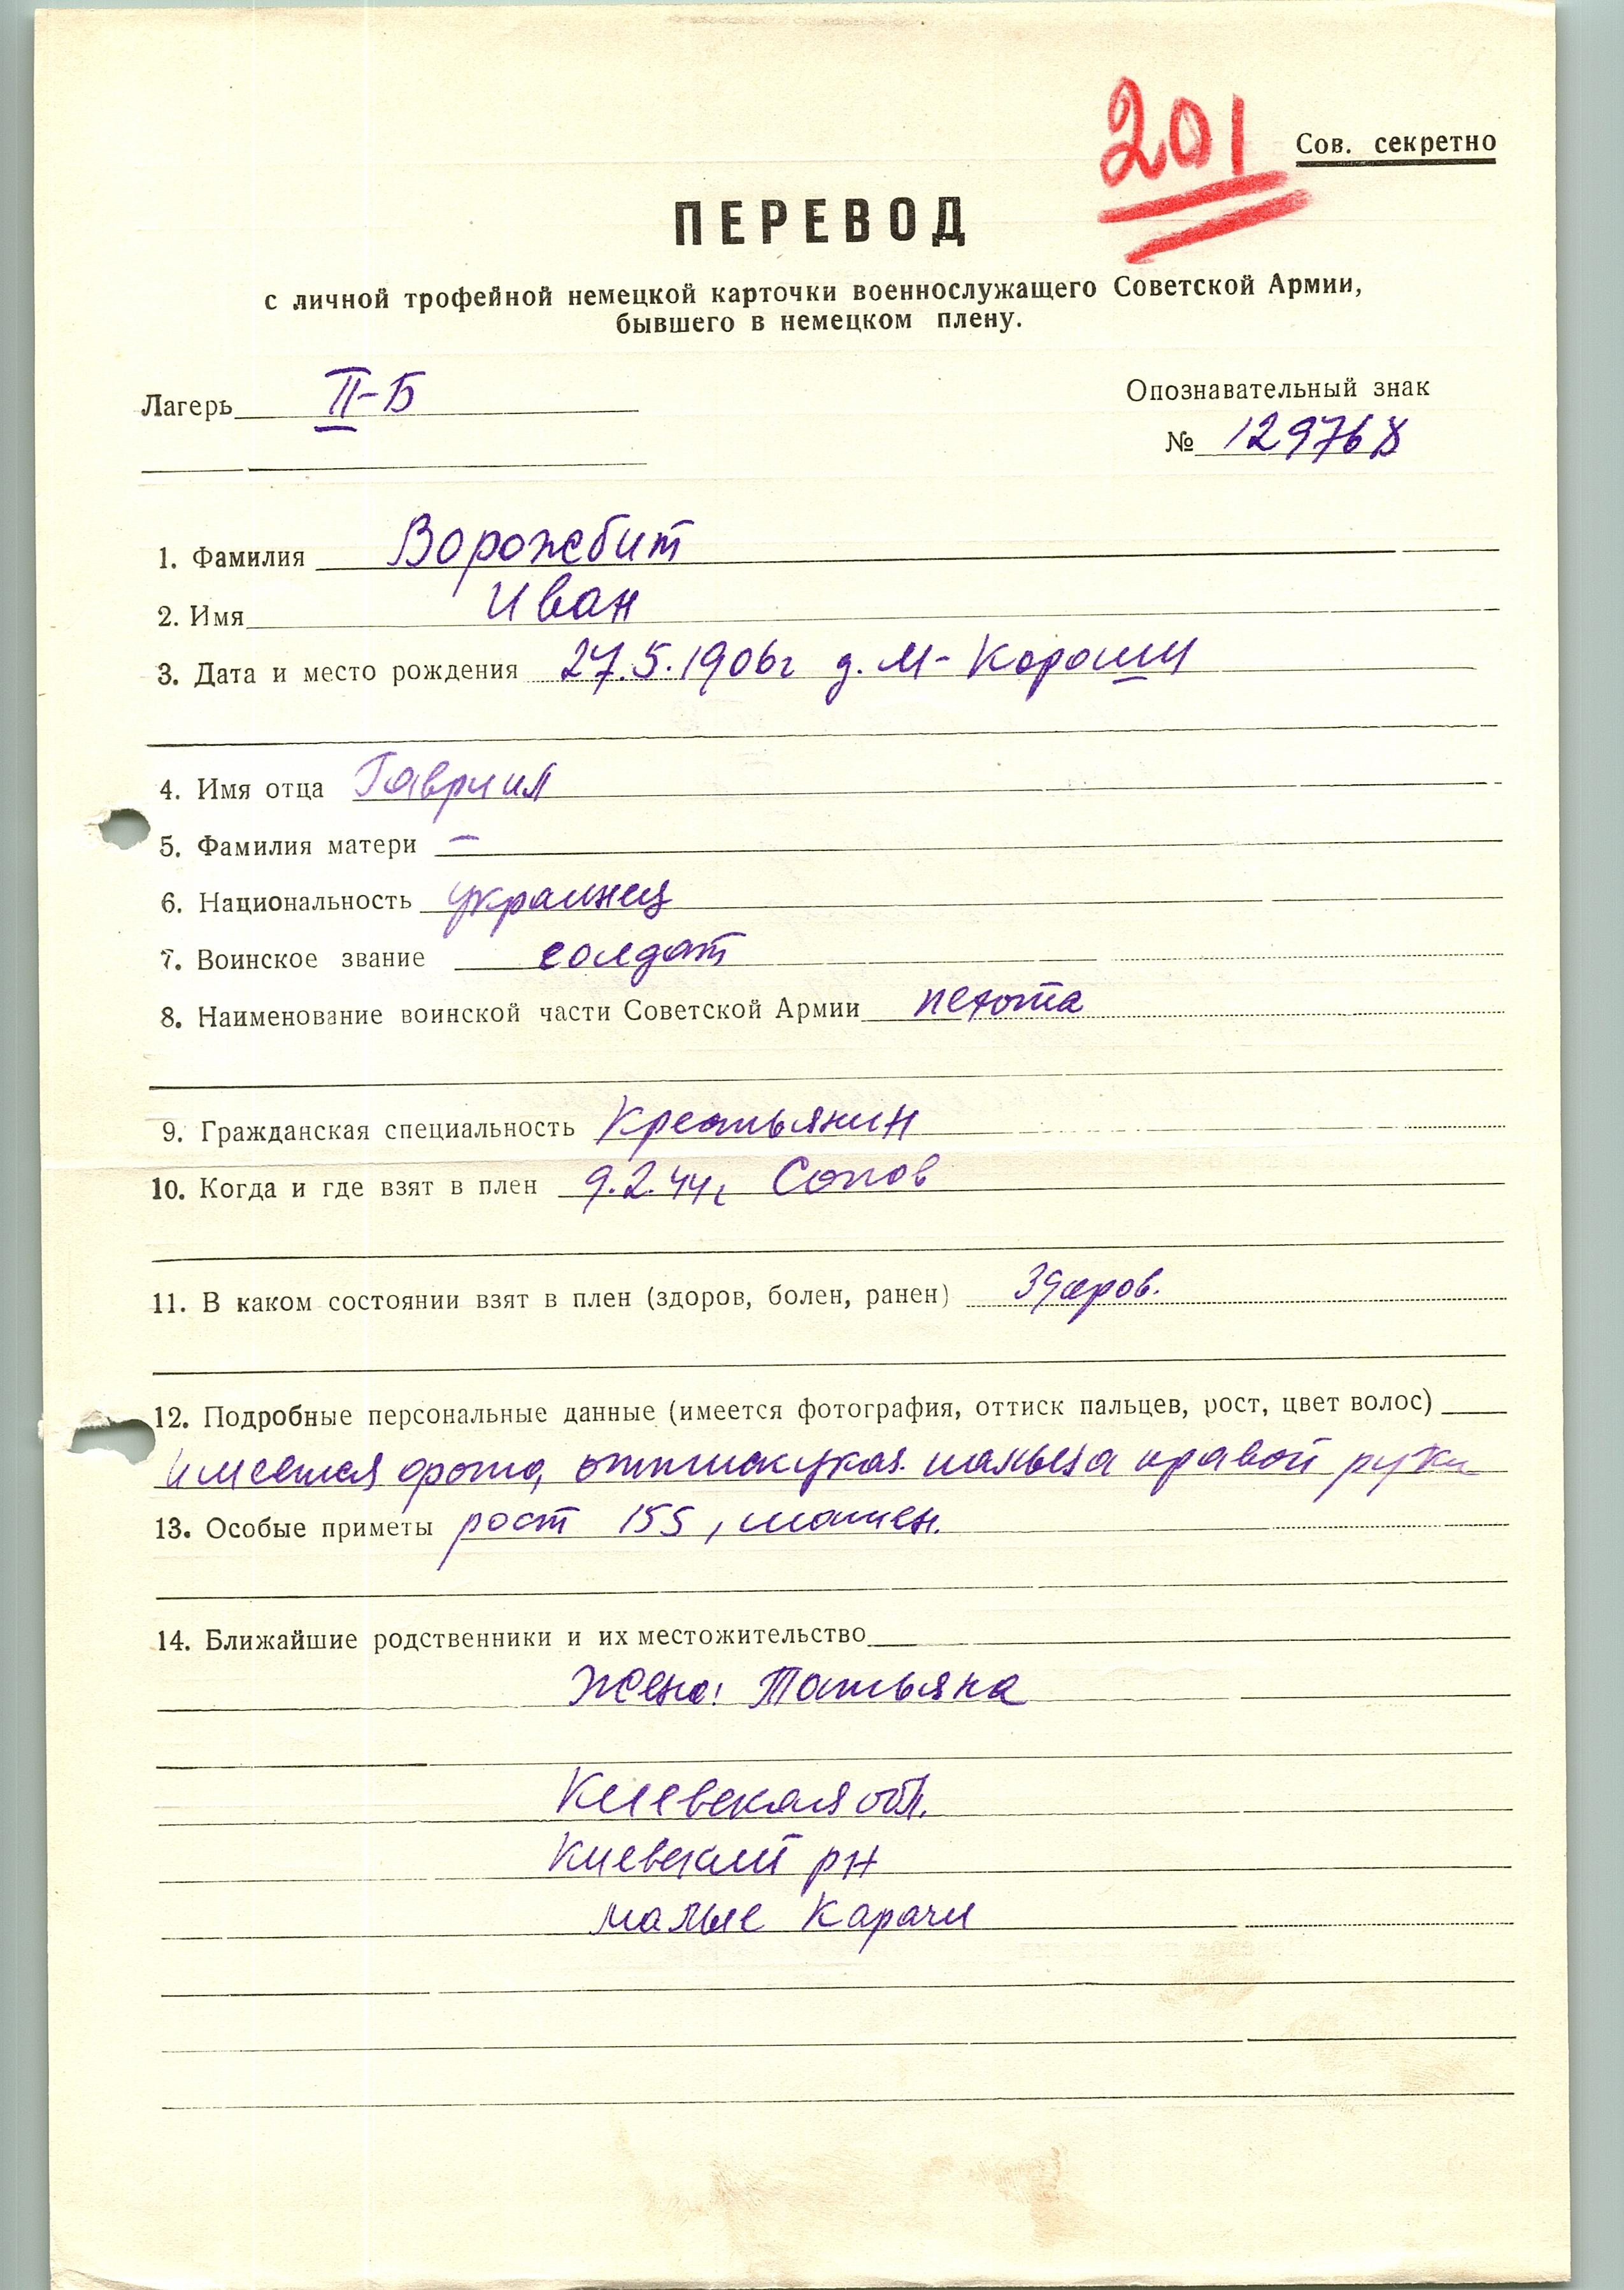 201
Сов. секретно
ПЕРЕВОД
с личной трофейной немецкой карточки военнослужащего Советской Армии,
бывшего в немецком плену.
Лагерь II-Б
Опознавательный знак
№ 129768
1. Фамилия Ворожбит
2. Имя Иван
3. Дата и место рождения 27.5.1906г д. М-
4. Имя отца Гавриил
5. Фамилия матери —
6. Национальность украинец
7. Воинское звание солдат
8. Наименование воинской части Советской Армии пехота
9. Гражданская специальность Крестьянин
10. Когда и где взят в плен 9.2.44г
11. В каком состоянии взят в плен (здоров, болен, ранен) здоров.
12. Подробные персональные данные (имеется фотография, оттиск пальцев, рост, цвет волос)
имеется фото, оттиск указ. пальца правой руки
13. Особые приметы рост 155, шатен.
14. Ближайшие родственники и их местожительство
Жена: Татьяна
Киевская обл.
Киевский рн
малые Карачи